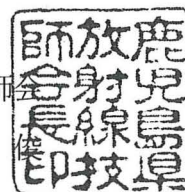 鹿児島県
放射線技
師会長印